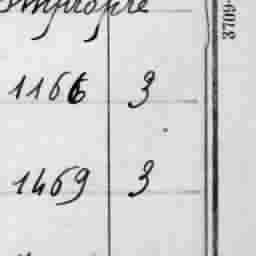 Impropre
1166 3
1469 3
3709-